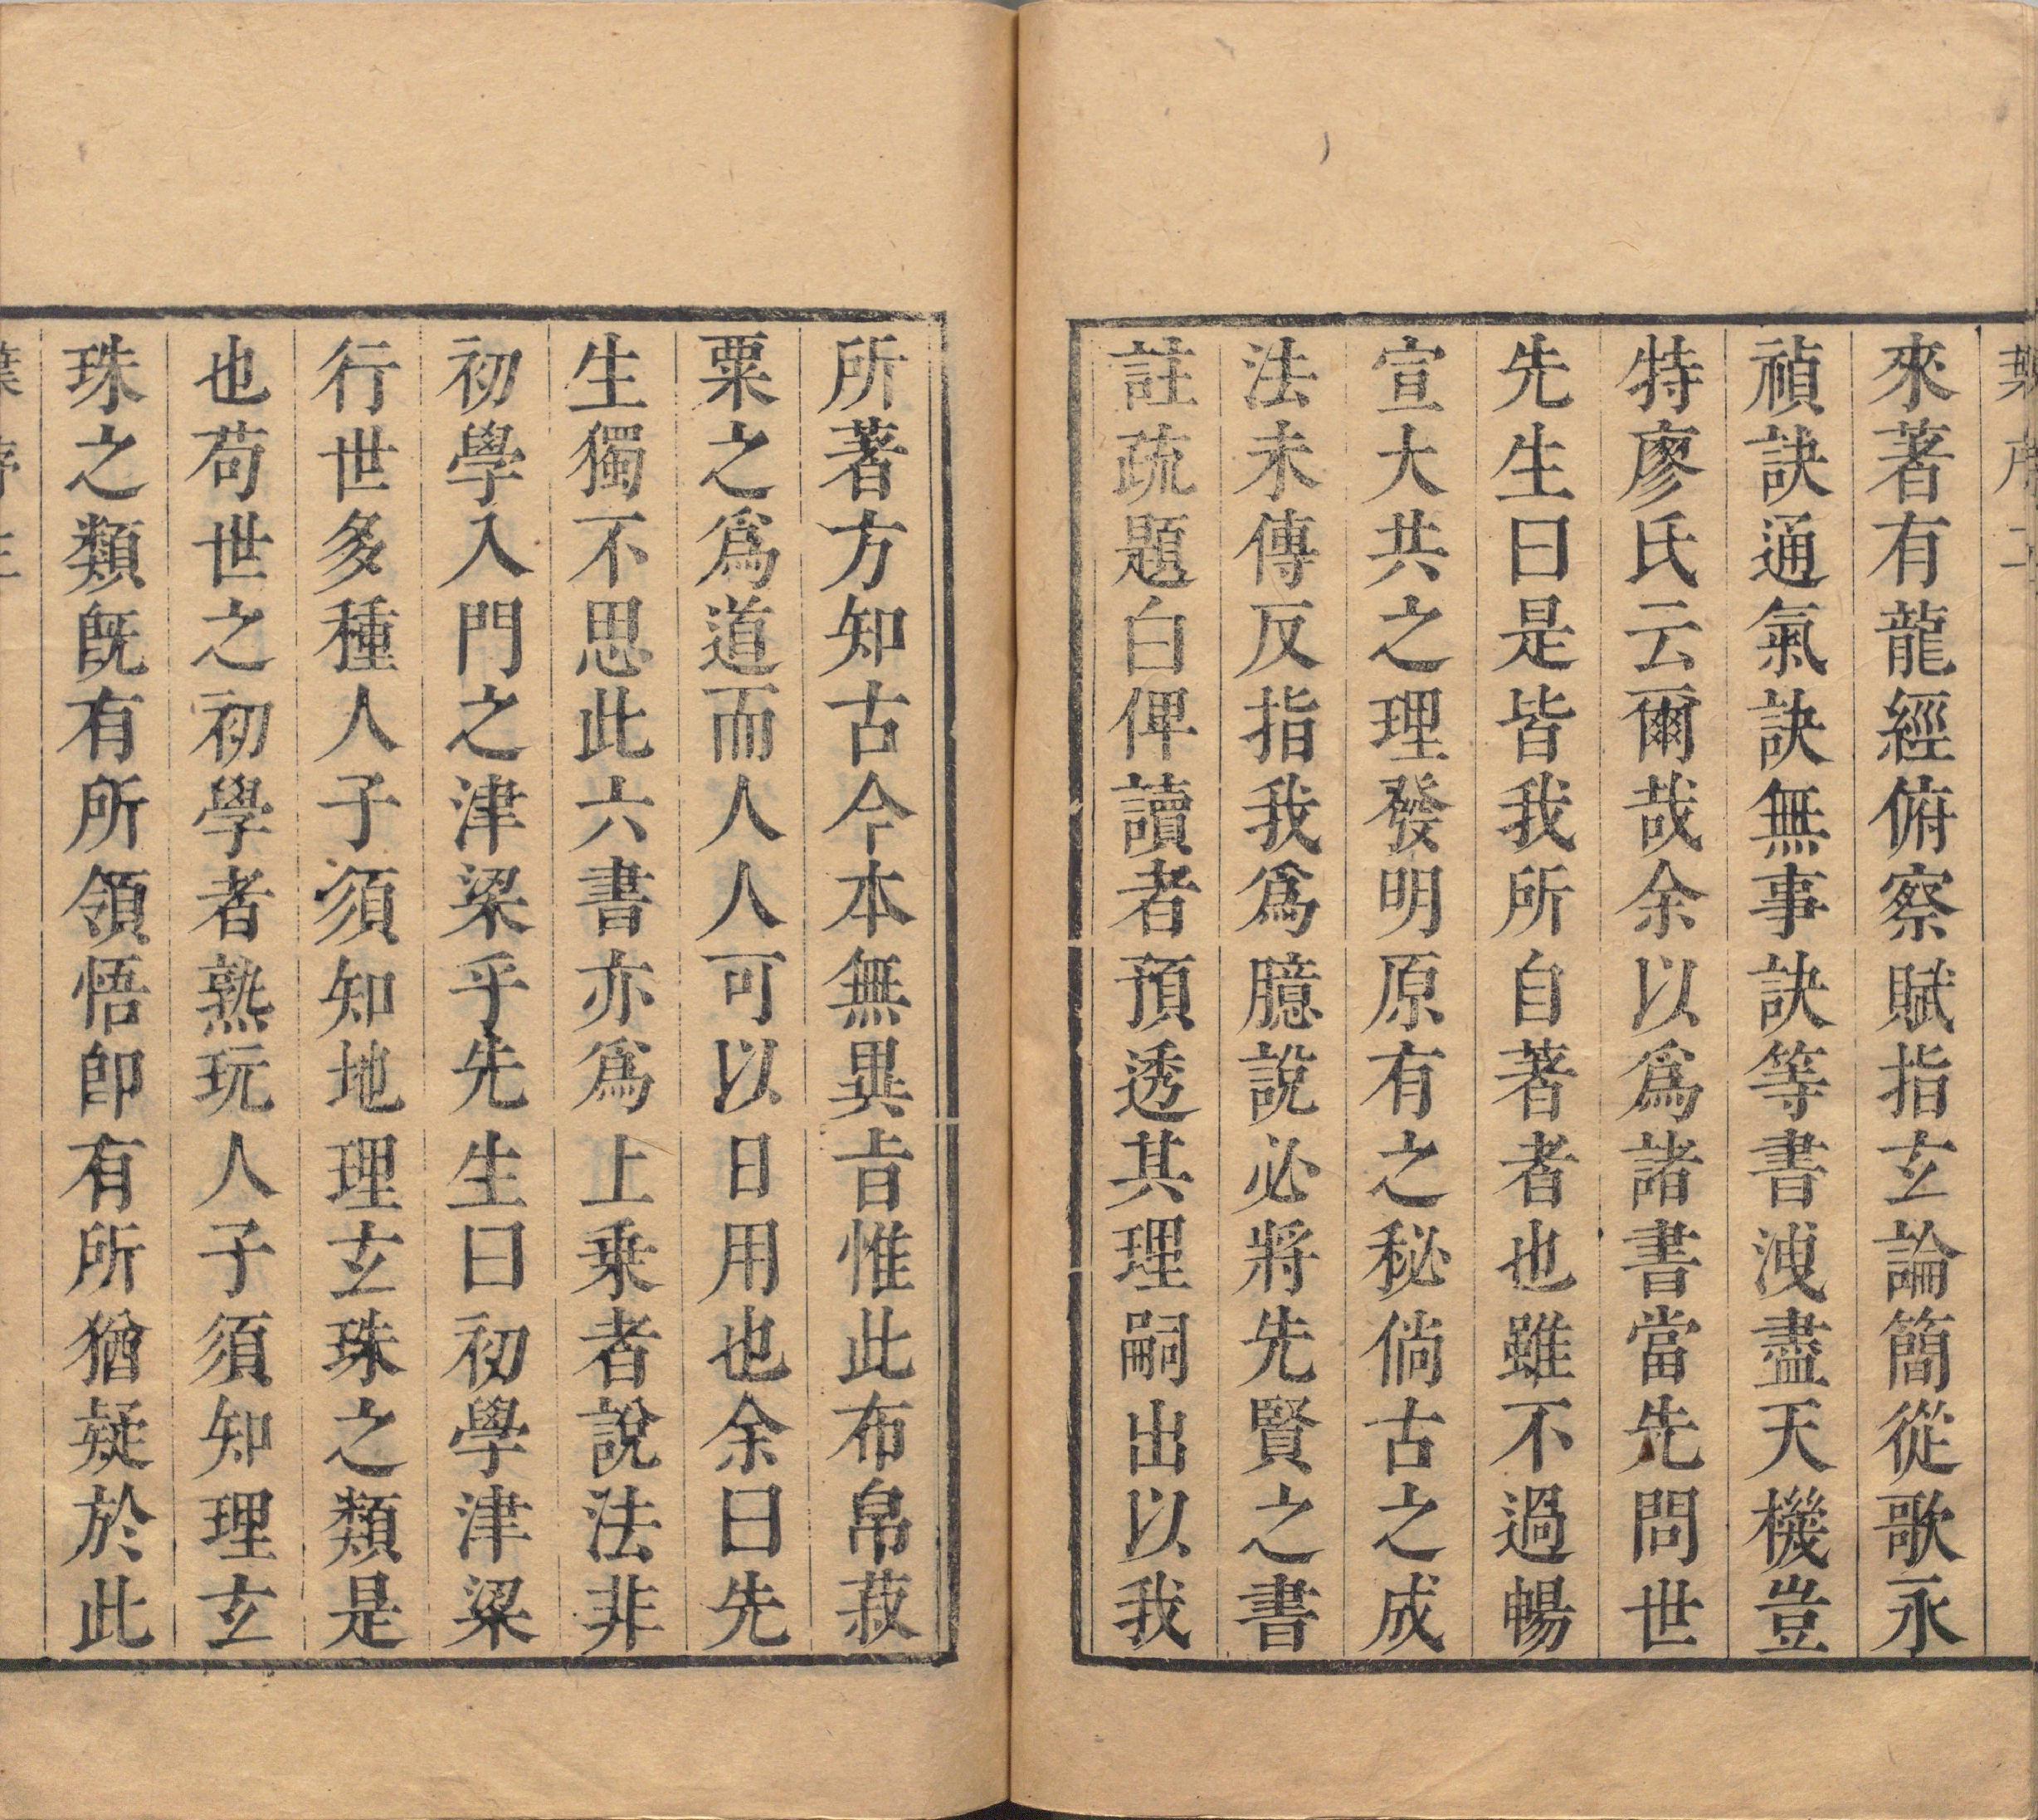 葉序二
來著有龍經俯察賦指玄論簡從歌永
禎訣通氣訣無事訣等書洩盡天機豈
特廖氏云爾哉余以爲諸書當先問世
先生曰是皆我所自著者也雖不過暢
宣大共之理發明原有之秘倘古之成
法未傳反指我爲臆說必將先賢之書
註疏題白俾讀者預透其理嗣出以我
所著方知古今本無異旨惟此布帛菽
粟之爲道而人人可以日用也余曰先
生獨不思此六書亦爲上乘者說法非
初學入門之津梁乎先生曰初學津梁
行世多種人子須知地理玄珠之類是
也苟世之初學者熟玩人子須知理玄
珠之類旣有所領悟卽有所猶疑於此
葉序三